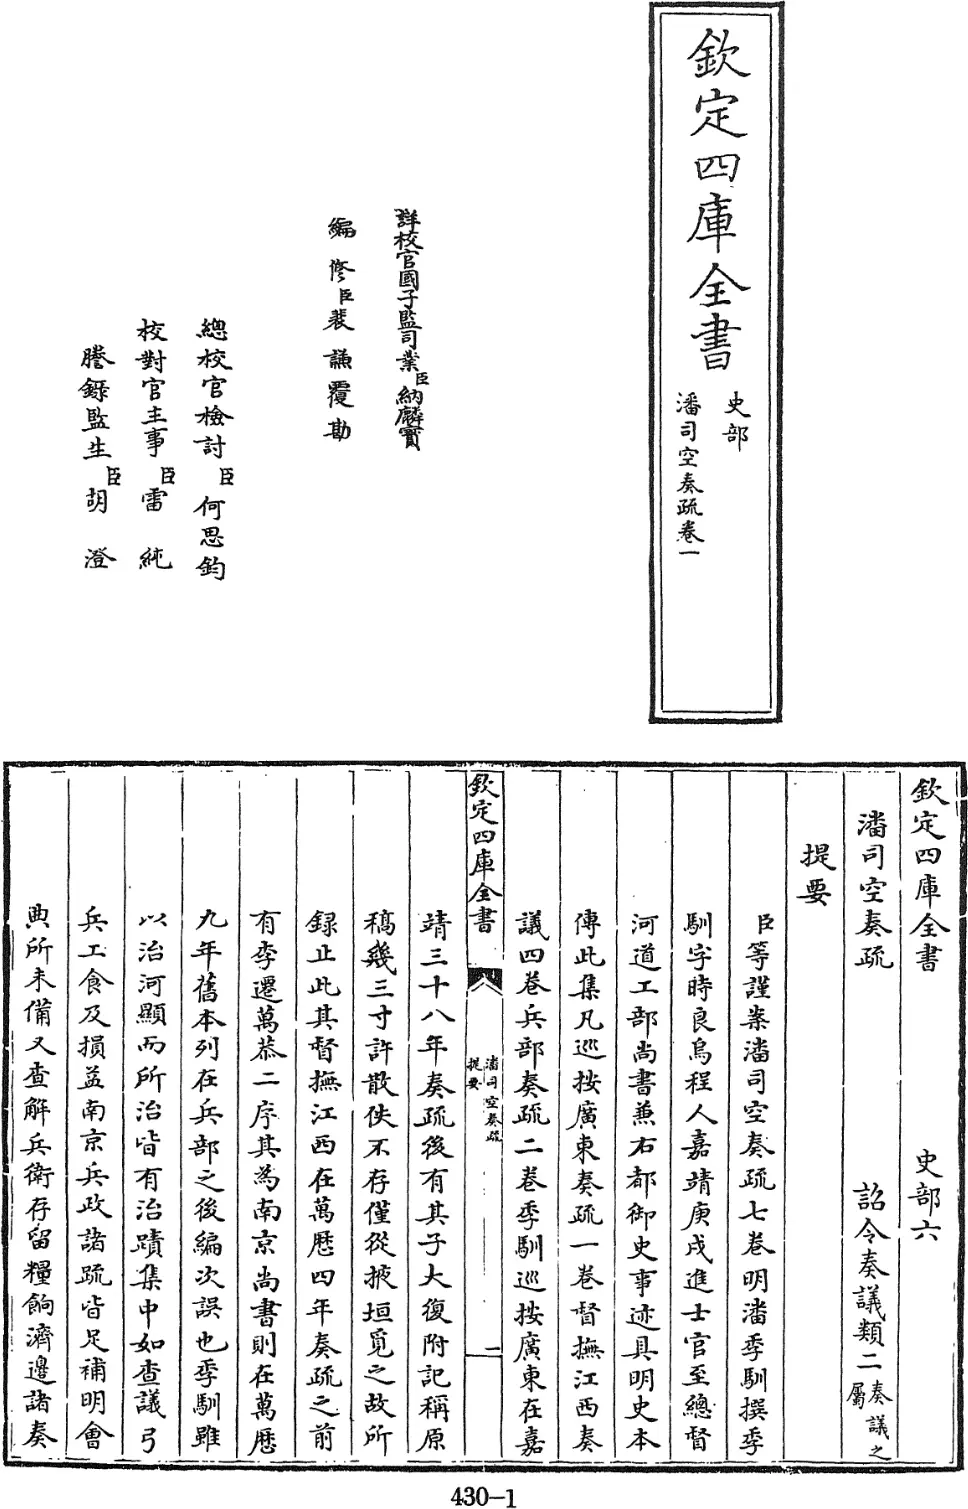 欽定四庫全書
史部
潘司空奏疏卷一
詳校官國子監司業臣納麟寶
編修臣裴謙覆勘
總校官檢討臣何思鈞
校對官主事臣雷純
謄錄監生臣胡澄
欽定四庫全書 史部六
潘司空奏疏 詔令奏議類二奏議之屬
提要
臣等謹案潘司空奏疏七卷明潘季馴撰季
馴字時良烏程人嘉靖庚戌進士官至總督
河道工部尚書兼右都御史事迹具明史本
傳此集凡巡按廣東奏疏一卷督撫江西奏
議四卷兵部奏疏二卷季馴巡按廣東在嘉
欽定四庫全書
潘司空奏疏
提要
一
靖三十八年奏疏後有其子大復附記稱原
稿幾三寸許散佚不存僅從掖垣覓之故所
録止此其督撫江西在萬歷四年奏疏之前
有李遷萬恭二序其為南京尚書則在萬歷
九年舊本列在兵部之後編次誤也季馴雖
以治河顯而所治皆有治蹟集中如查議弓
兵工食及損益南京兵政諸疏皆足補明會
典所未備又查解兵衛存留糧餉濟邊諸奏
430-1